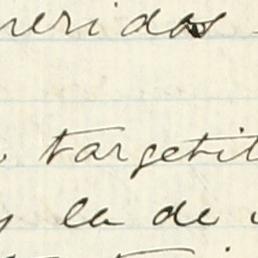 neridos
targetit
y la de